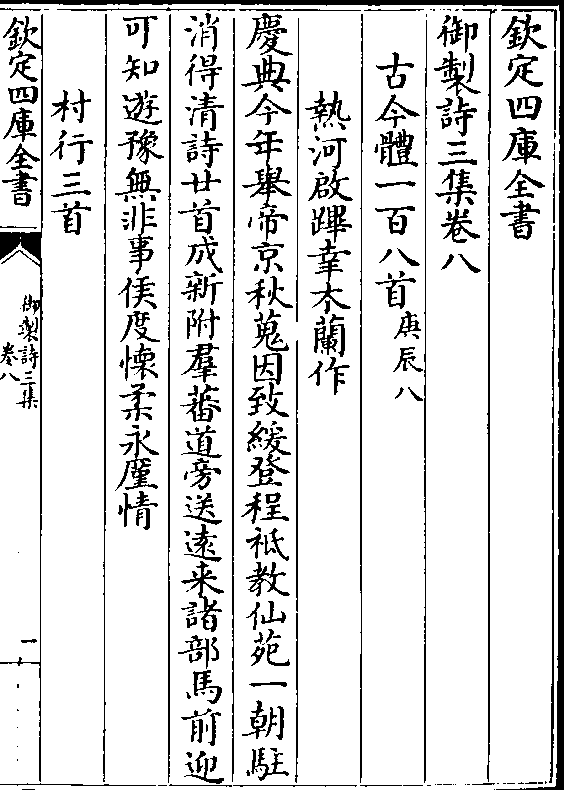 欽定四庫全書
御製詩三集卷八
古今體一百八首庚辰八
熱河啟蹕幸木蘭作
慶典今年舉帝京秋蒐因致緩登程祗教仙苑一朝駐
消得清詩廿首成新附羣蕃道旁送遠来諸部馬前迎
可知遊豫無非事侯度懷柔永廑情
村行三首
欽定四庫全書
御製詩三集
卷八
一